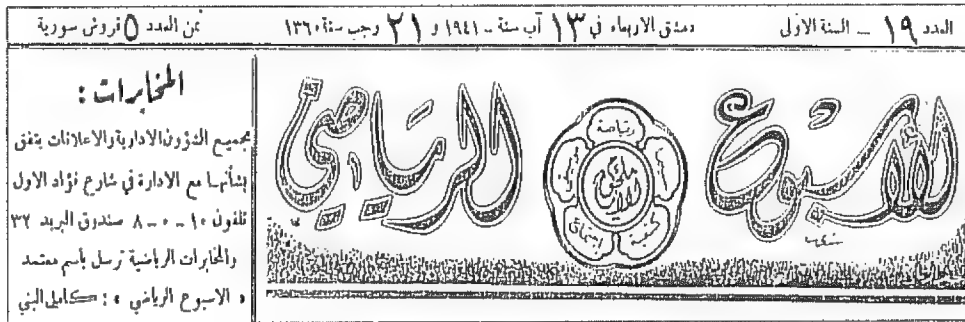 العدد ١٩ ـ السنة الاولى
دمشق الاربعاء في ١٣ آب سنة ـ ١٩٤١ و ٢١ رجب سنة ١٣٦٠
ثمن العدد ٥ قروش سورية
الاسبوع
الرياضي
رياضة
كشفية
المخابرات :
جميع الشؤون الادارية والاعلانات يتفق
بشأنها مع الادارة في شارع فؤاد الاول
تلفون ١٠ ـ ٠ ـ ٨ صندوق البريد ٣٢
والمخابرات الرياضية ترسل بأسم معتمد
« الاسبوع الرياضي » : كامل البني